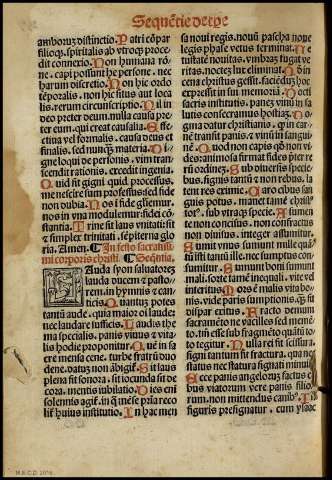 Sequẽtie de tꝑe
amboꝝ distinctio. Patri cõpar
filioqꝫ. spiritalis ab vtroqꝫ proce
dit connexio. Non humana rõ
ne. capi possunt he persone. nec
harum discretio. Non hic ordo
tẽporalis. non hic situs aut loca
lis. rerum circũscriptio. Nil in
deo preter deum. nulla causa pre
ter eum. qui creat causalia. Effe
ctiua vel formalis. causa deus et
finalis. sed nunqꝫ materia. Di
gne loqui de personis. vim tran
scendit rationis. excedit ingenia.
Quid sit gigni quid processus.
me nescire sum professus. sed fide
non dubia. Nos fide gliemur.
nos in vna modulemur. fidei cõ
stantia. Trine sit laus vnitati: sit
et simplex trinitati. sẽpiterna glo
ria. Amen. In festo sacratissi
mi corporis christi. Seq̃ntia.
Lauda syon saluatorez
lauda ducem et pasto
rem. in hymnis et can
ticis. Quantuꝫ potes
tantũ aude. quia maior oĩ laude
nec laudare sufficis. Laudis the
ma specialis. panis viuus et vita
lis hodie proponitur. Que in sa
cre mensa cene. turbe fratrũ duo
dene. datuꝫ non ãbigit̃. Sit laus
plena sit sonora. sit iocunda sit de
cora. mentis iubilatio. Dies eni
solennis agit̃. in q̃ mẽse prĩa reco
lit̃ huius institutio. In hac men
sa noui regis. nouũ pascha noue
legis phase vetus terminat. Ve
tustatẽ nouitas. vmbraꝫ fugat ve
ritas. noctez lux eliminat. Qd in
cena christus gessit. faciẽduꝫ hoc
expressit in sui memoriã. Docti
sacris institutis. panẽ vinũ in sa
lutis consecramus hostiaꝫ. Do
gma datur christianis. qꝫ in car
nẽ transit panis. et vinũ in sangui
nẽ. Quod non capis qd non vi
des: animosa firmat fides pter re
rũ ordinẽ. Sub diuersis specie
bus. signis tantũ et non rebus. la
tent res eximie. Caro cibus san
guis potus. manet tamẽ christ
totꝰ. sub vtraqꝫ specie. A sumen
te non concisus. non confractus
non diuisus. integer assumitur.
Sumit vnus sumunt mille quã
tũ isti tantũ ille. nec sumptus con
sumitur. Sumunt boni sumunt
mali. sorte tamẽ inequali. vite vel
interitus. Mors ẽ malis vita bo
nis. vide paris sumptionis. qꝫ sit
dispar exitus. Fracto demum
sacramẽto ne vacilles sed memẽ
to. tm̃ esse sub fragmẽto quãtũ to
to tegitur. Nulla rei fit scissura
signi tantum fit fractura. qua nec
status nec statura signati minuit̃
Ecce panis angeloruꝫ factus ci
bus viatorum vere panis filio
rum. non mittendus canibꝰ. In
figuris presignatur. cum ysaac